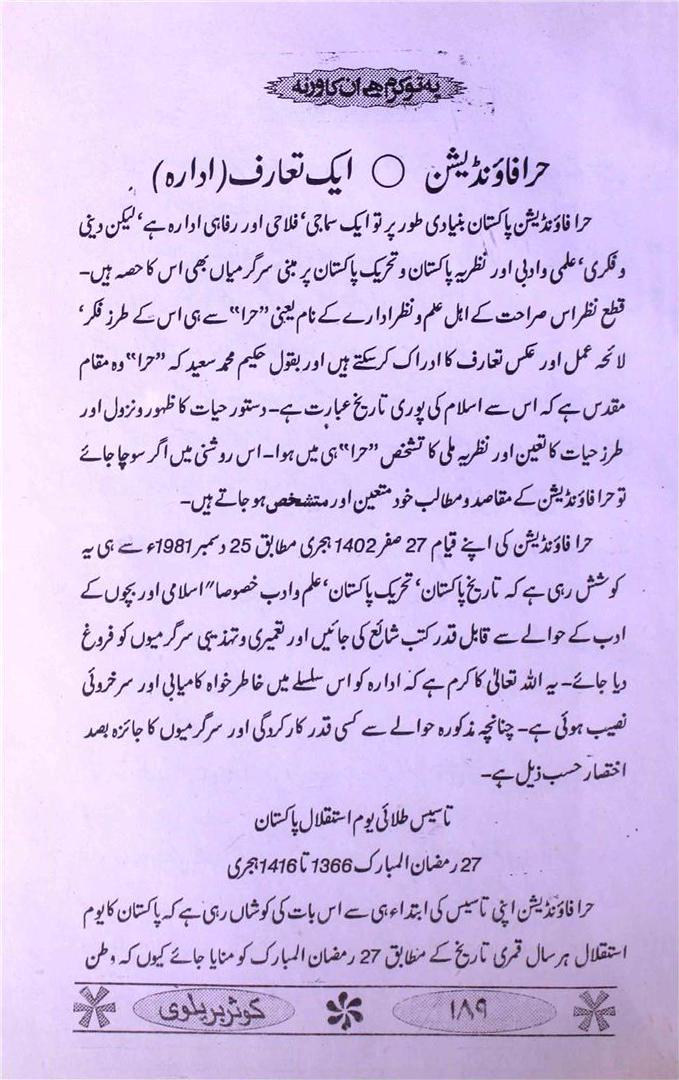 یہ تو کرم ہے ان کا ورنہ
حرا فاؤنڈیشن ○ ایک تعارف (ادارہ)
حرا فاؤنڈیشن پاکستان بنیادی طور پر تو ایک سماجی، فلاحی اور رفاہی ادارہ ہے، لیکن دینی
و فکری، علمی و ادبی اور نظریہ پاکستان و تحریک پاکستان پر مبنی سرگرمیاں بھی اس کا حصہ ہیں۔
قطع نظر اس صراحت کے اہل علم و نظر ادارے کے نام یعنی ”حرا“ سے ہی اس کے طرز فکر،
لائحہ عمل اور عکس تعارف کا ادراک کرسکتے ہیں اور بقول حکیم محمد سعید کہ ”حرا“ وہ مقام
مقدس ہے کہ اس سے اسلام کی پوری تاریخ عبارت ہے۔ دستور حیات کا ظہور و نزول اور
طرز حیات کا تعین اور نظریہ ملی کا تشخص ”حرا“ ہی میں ہوا۔ اس روشنی میں اگر سوچا جائے
تو حرا فاؤنڈیشن کے مقاصد و مطالب خود متعین اور متشخص ہو جاتے ہیں۔
حرا فاؤنڈیشن کی اپنے قیام 27 صفر 1402 ہجری مطابق 25 دسمبر 1981ء سے ہی یہ
کوشش رہی ہے کہ تاریخ پاکستان، تحریک پاکستان، علم و ادب خصوصا" اسلامی اور بچوں کے
ادب کے حوالے سے قابل قدر کتب شائع کی جائیں اور تعمیری و تہذیبی سرگرمیوں کو فروغ
دیا جائے۔ یہ اللہ تعالیٰ کا کرم ہے کہ ادارہ کو اس سلسلے میں خاطر خواہ کامیابی اور سرخروئی
نصیب ہوئی ہے۔ چنانچہ مذکورہ حوالے سے کسی قدر کارکردگی اور سرگرمیوں کا جائزہ بصد
اختصار حسب ذیل ہے۔
تاسیس طلائی یوم استقلال پاکستان
27 رمضان المبارک 1366 تا 1416 ہجری
حرا فاؤنڈیشن اپنی تاسیس کی ابتداء ہی سے اس بات کی کوشاں رہی ہے کہ پاکستان کا یوم
استقلال ہر سال قمری تاریخ کے مطابق 27 رمضان المبارک کو منایا جائے کیوں کہ وطن
۱۸۹ کوثر بریلوی